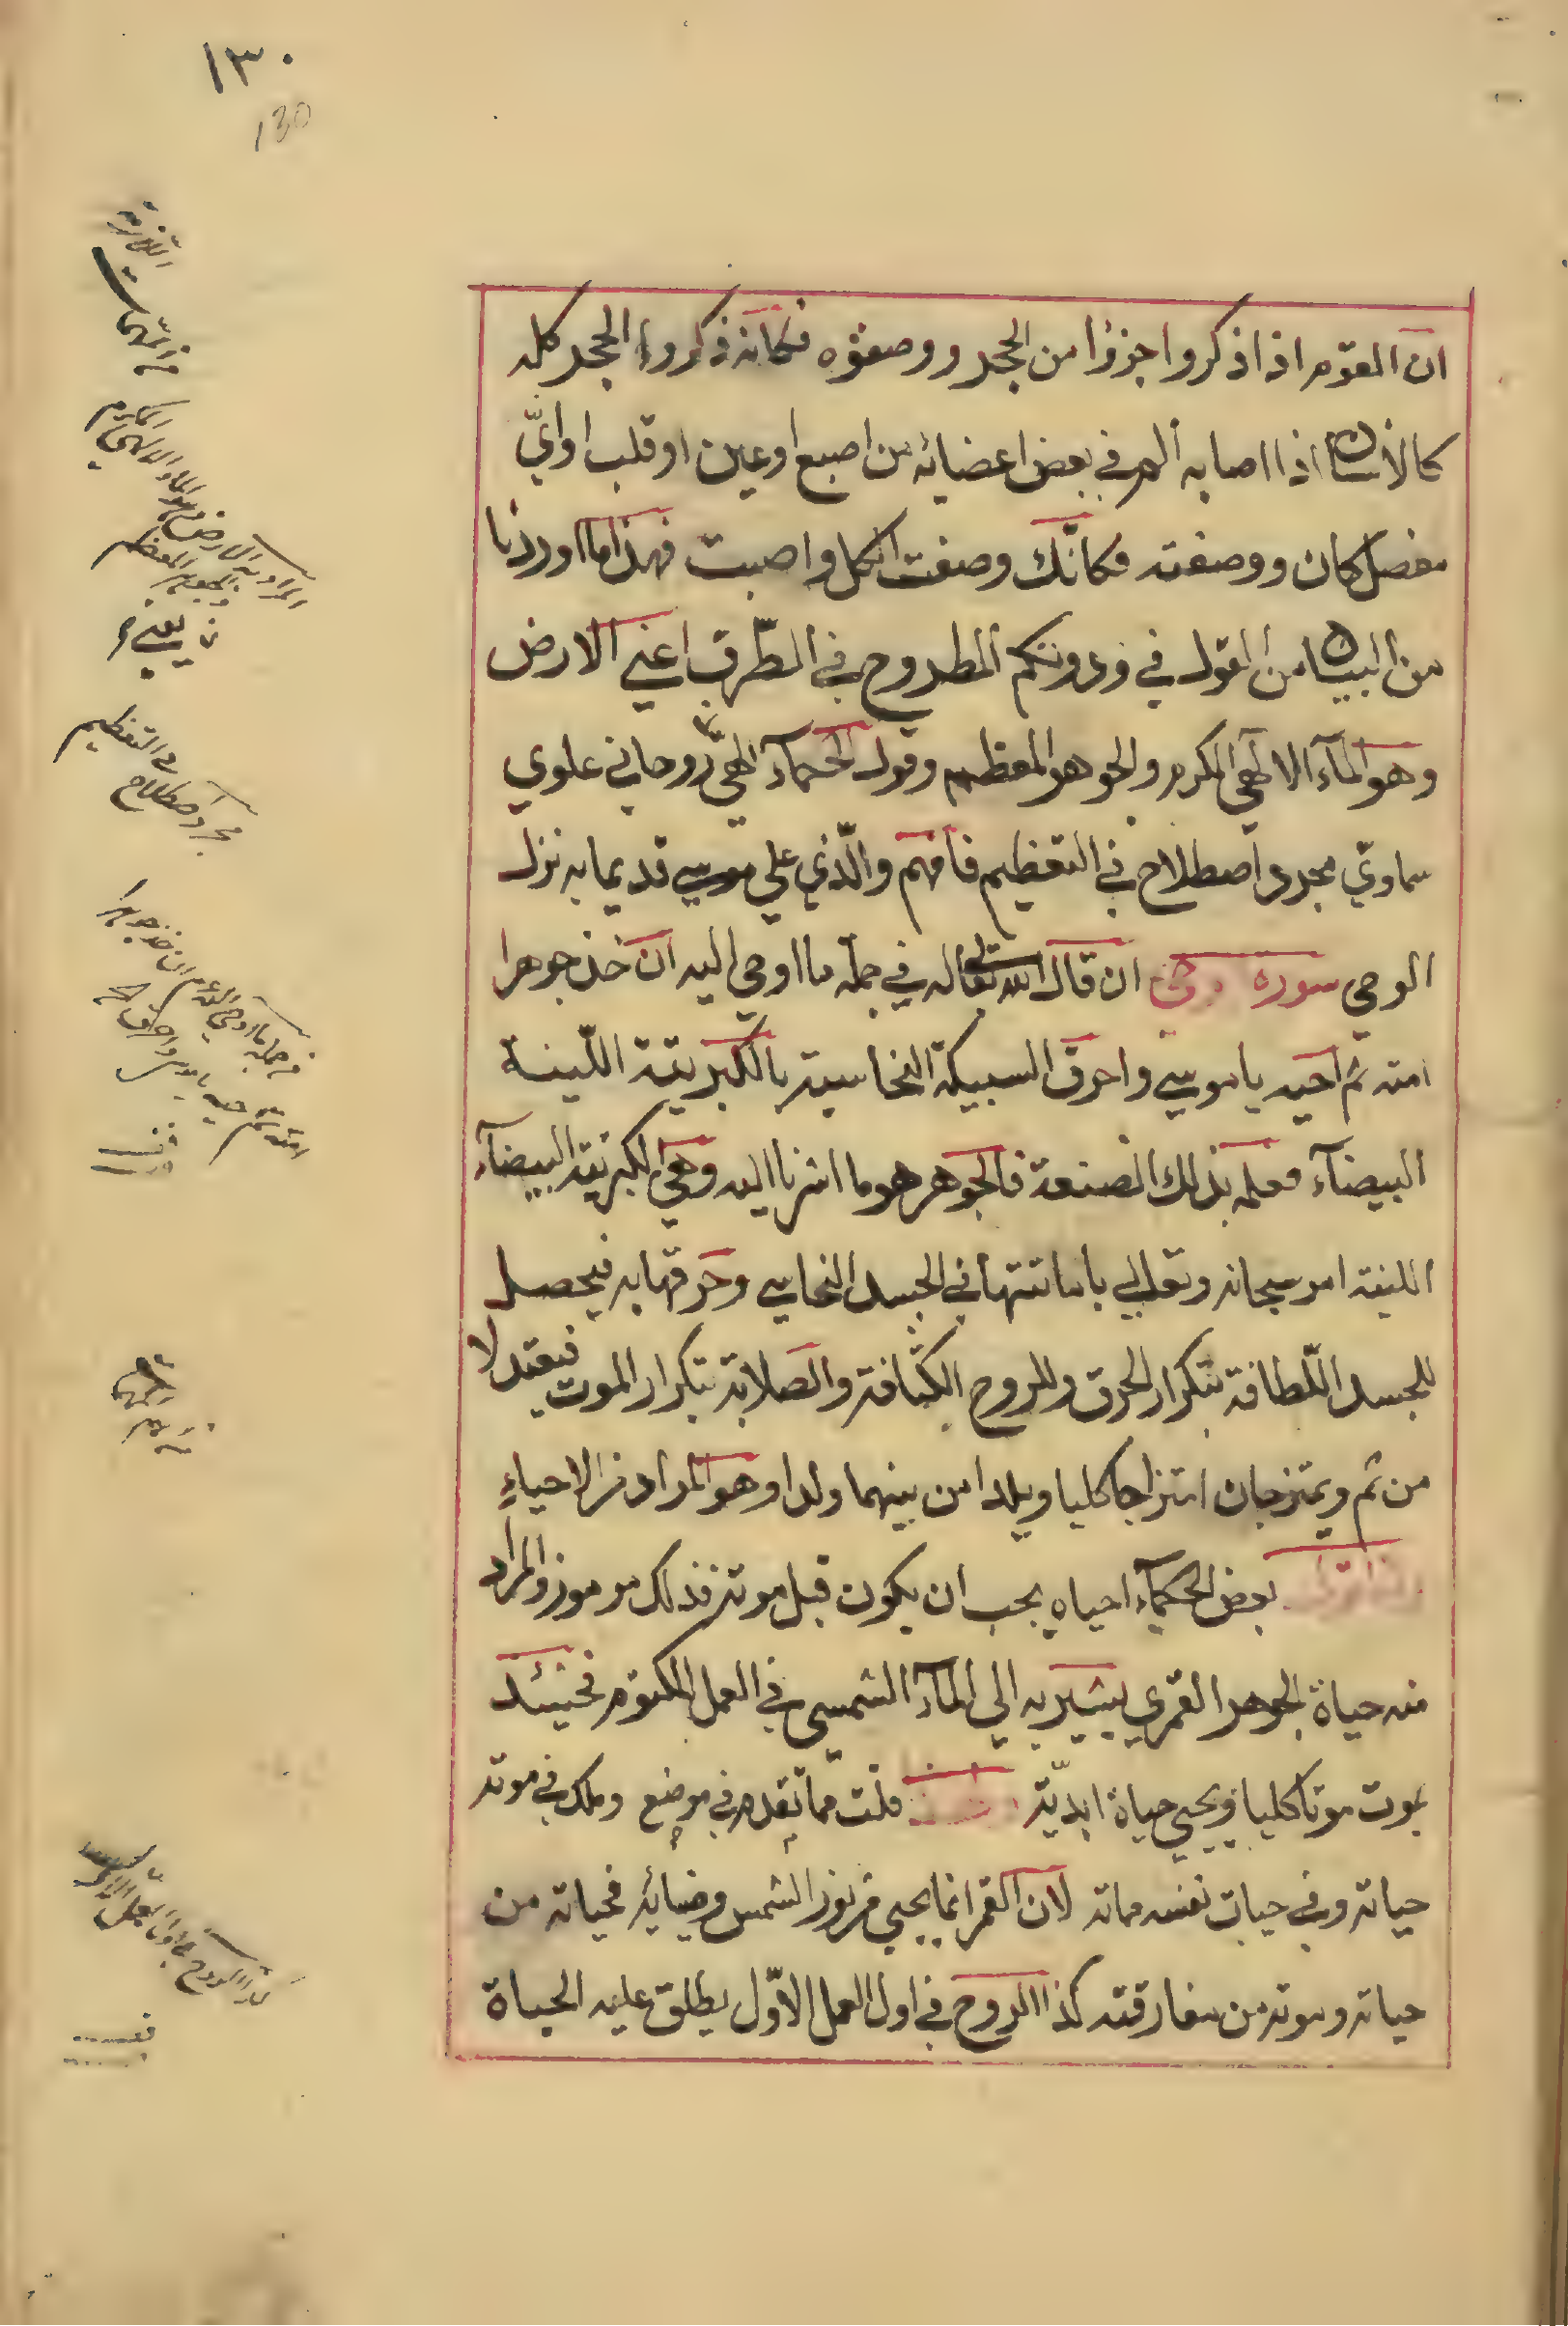 ١٣٠
130
ان القوم اذا ذكروا جزؤا من الحجر ووصفوه فكانه ذكروا الحجر كله
كالانسان اذا اصابه الم في بعض اعضائه من اصبع او عين او قلب او ايّ
مفصل كان ووصفته فكانّك وصفت الكل واصبت فهذا ما اوردنا
من البيان من القول في ودونكم المطروح في الطّرق اعني الارض
وهو المآء الالهي المكرم والجوهر المعظم وقول الحكمآء الهيّ روحاني علوي
سماويّ مجرد اصطلاح في التعظيم فافهم والّذي علي موسي قديما به نزل
الوحي سورة ان قال الله تعالي له في جملة ما اوحي اليه ان خذ جوهرا
امته ثم احيه يا موسي واحرق السبيكة النحاسية بالكبريتة اللّينة
البيضآء فعلمه بذلك الصنعة فالجوهر هو ما اشرنا اليه وهي الكبريتة البيضآء
اللينة امر سبحانه وتعالي باماتتها في الجسد النحاسي وحرقها به فيحصل
للجسد اللّطافة بتكرار الحرق وللروح الكثافة والصلابة بتكرار الموت فيعتدلا
من ثم ويمتزجان امتزاجا كليا ويلدا من بينهما ولدا وهو المراد من الاحياءِ
بعض الحكمآء احياه يجب ان يكون قبل موته فذلك مرموز والمراد
منه حياة الجوهر القمري يشير به الي المآء الشمسي في العمل المكتوم فحينئذ
يموت موتا كليا ويحيي حياة ابديّة قلت مما تقدم في موضع وملك في موته
حياته وفي حيات نفسه مماته لان القمر انما يحيي من نور الشمس وضيائه فحياته من
حياته وموته من مفارقته كذا الروح في اول العمل الاوّل يطلق عليه الحياة
يعني
في التعظيم
مجرد اصطلاح
في جملة ما اوحي اليه ان خذ جوهرا
امته ثم احيه يا موسي واحرق